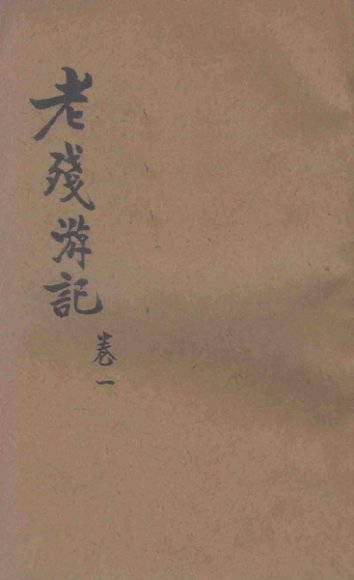 老殘游記
卷一